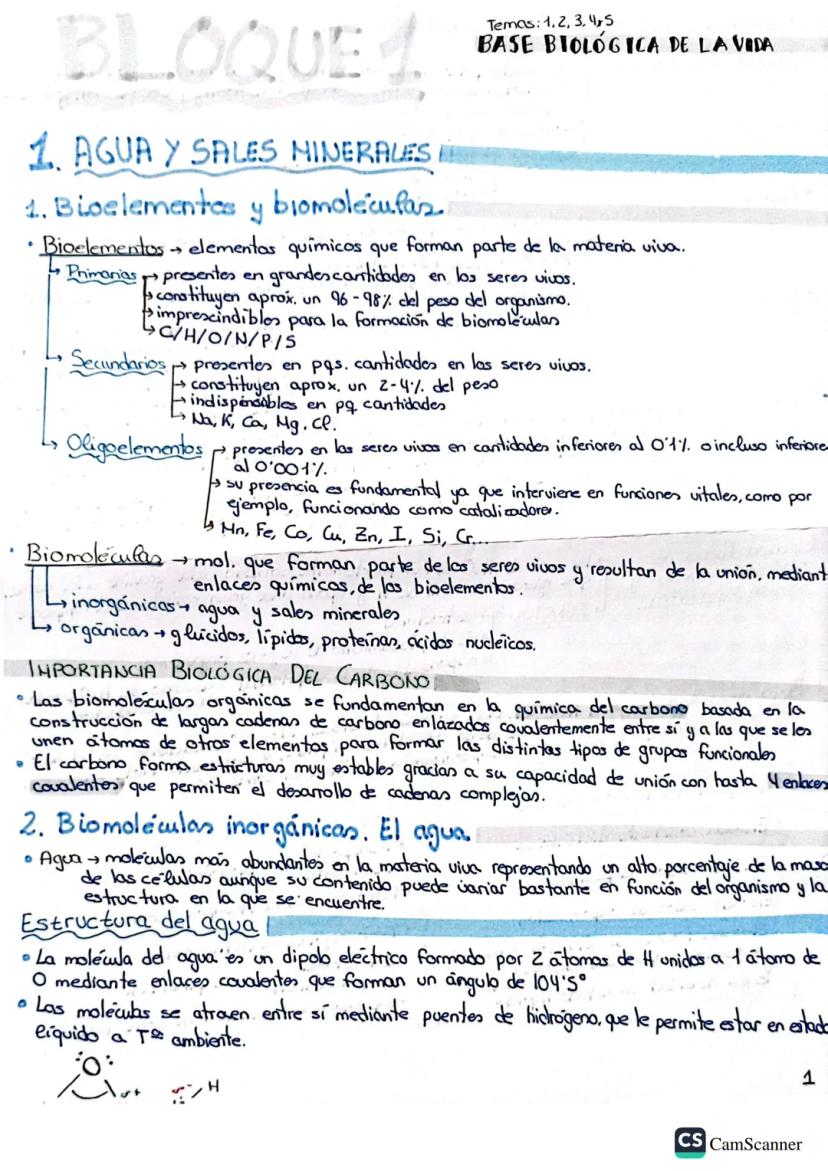 BLOQUE 1
Temas: 1, 2, 3, 4 y 5
BASE BIOLÓGICA DE LA VIDA
1. AGUA Y SALES MINERALES
1. Bioelementos y biomoléculas
• Bioelementos → elementos químicos que forman parte de la materia viva.
↳ Primarios → presentes en grandes cantidades en los seres vivos.
↳ constituyen aprox. un 96-98% del peso del organismo.
↳ imprescindibles para la formación de biomoléculas
↳ C/H/O/N/P/S
↳ Secundarios → presentes en pqs. cantidades en los seres vivos.
→ constituyen aprox. un 2-4% del peso
→ indispensables en pq cantidades
↳ Na, K, Ca, Mg, Cl.
↳ Oligoelementos → presentes en los seres vivos en cantidades inferiores al 0'1% o incluso inferiore
al 0'001%.
→ su presencia es fundamental ya que interviene en funciones vitales, como por
ejemplo, funcionando como catalizadores.
↳ Mn, Fe, Co, Cu, Zn, I, Si, Cr...
• Biomoléculas → mol. que forman parte de los seres vivos y resultan de la unión, mediant
enlaces químicos, de los bioelementos.
↳ inorgánicas → agua y sales minerales
↳ orgánicas → glúcidos, lípidos, proteínas, ácidos nucleicos.
IMPORTANCIA BIOLÓGICA DEL CARBONO
• Las biomoléculas orgánicas se fundamentan en la química del carbono basada en la
construcción de largas cadenas de carbono enlazados covalentemente entre sí y a las que se les
unen átomos de otros elementos para formar las distintas tipos de grupos funcionales
• El carbono forma estructuras muy estables gracias a su capacidad de unión con hasta 4 enlaces
covalentes que permiten el desarrollo de cadenas complejas.
2. Biomoléculas inorgánicas. El agua.
• Agua → moléculas más abundantes en la materia viva representando un alto porcentaje de la masa
de las células aunque su contenido puede variar bastante en función del organismo y la
estructura en la que se encuentre.
Estructura del agua
• La molécula del agua es un dipolo eléctrico formado por 2 átomos de H unidos a 1 átomo de
O mediante enlaces covalentes que forman un ángulo de 104'5°
• Las moléculas se atraen entre sí mediante puentes de hidrógeno, que le permite estar en estado
líquido a Tª ambiente.
O
H
1
CS CamScanner